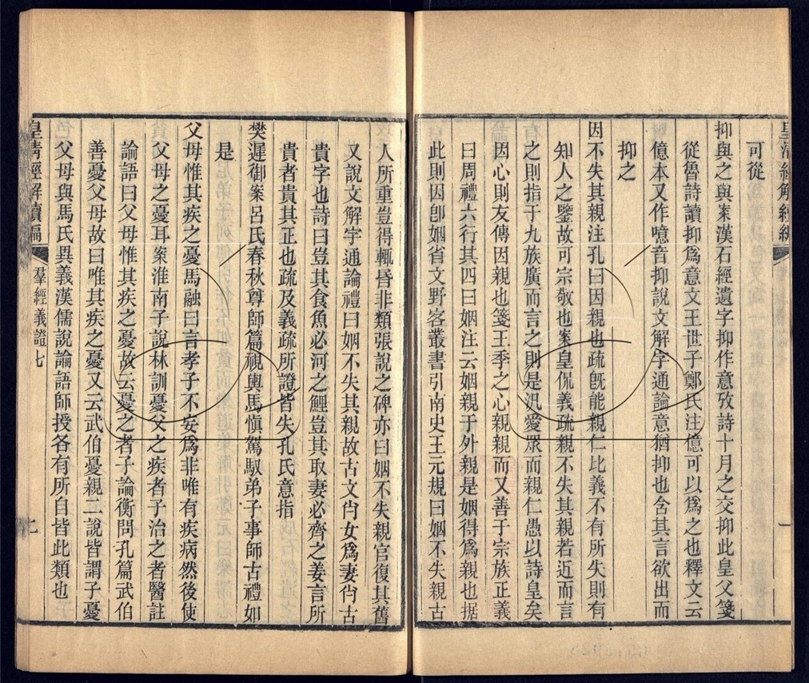 皇清經解續編
可從
抑與之與案漢石經遺字抑作意攷詩十月之交抑此皇父箋
從魯詩讀抑爲意文王世子鄭氏注億可以爲之也釋文云
億本又作噫音抑說文解字通論意猶抑也含其言欲出而
抑之
因不失其親注孔曰因親也疏旣能親仁比義不有所失則有
知人之鑒故可宗敬也案皇侃義疏親不失其親若近而言
之則指于九族廣而言之則是汎愛眾而親仁愚以詩皇矣
因心則友傳因親也箋王季之心親親而又善于宗族正義
曰周禮六行其四曰姻注云姻親于外親是姻得爲親也据
此則因卽姻省文野客叢書引南史王元規曰姻不失親古
人所重豈得輒昏非類張說之碑亦曰姻不失親官復其舊
又說文解字通論禮曰姻不失其親故古文肖女爲妻肖古
貴字也詩曰豈其食魚必河之鯉豈其取妻必齊之姜言所
貴者貴其正也疏及義疏所證皆失孔氏意指
樊遲御案呂氏春秋尊師篇視輿馬愼駕馭弟子事師古禮如
是
父母惟其疾之憂馬融曰言孝子不妄爲非唯有疾病然後使
父母之憂耳案淮南子說林訓憂父之疾者子治之者醫註
論語曰父母惟其疾之憂故云憂之者子論衡問孔篇武伯
善憂父母故曰唯其疾之憂又云武伯憂親二說皆謂子憂
父母與馬氏異義漢儒說論語師授各有所自皆此類也
皇清經解續編 羣經義證七